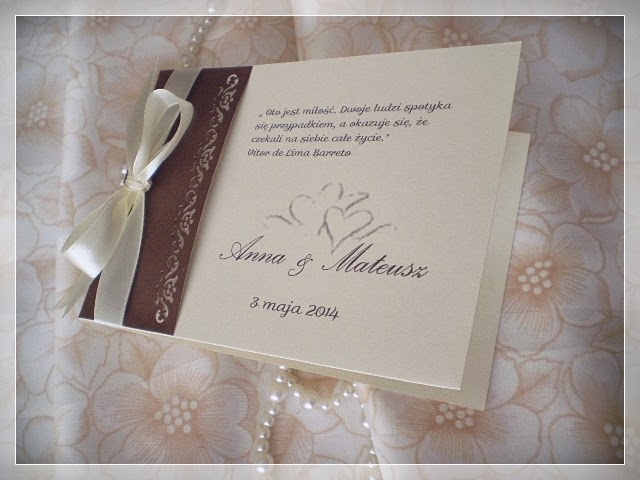 „ Oto jest miłość. Dwoje ludzi spotyka
się przypadkiem, a okazuje się, że
czekali na siebie całe życie."
Vitor de Lima Barreto
Anna & Mateusz
3 maja 2014